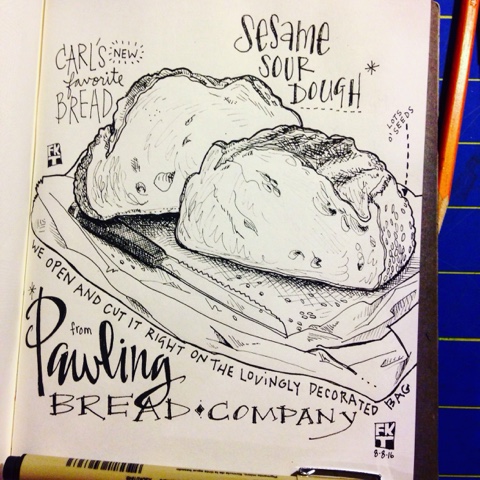 CARL'S NEW
favorite
BREAD
Sesame
SOUR
DOUGH
LOTS
O' SEEDS
FK
T
WE OPEN AND CUT IT RIGHT ON THE LOVINGLY DECORATED BAG
from
Pawling
BREAD COMPANY
FK
T
8-8-16